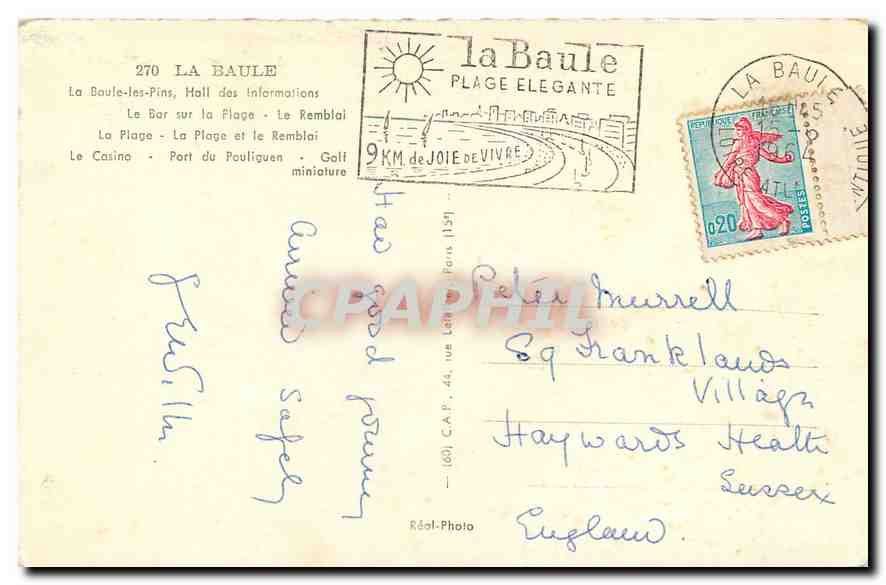 270 LA BAULE
La Baule-les-Pins, Hall des Informations
Le Bar sur la Plage - Le Remblai
La Plage - La Plage et le Remblai
Le Casino - Port du Pouliguen - Golf
miniature
la Baule
PLAGE ELEGANTE
9 KM. de JOIE DE VIVRE
LA BAULE
1964
ATL
REPUBLIQUE FRANÇAISE
0,20
POSTES
Had good journey
Arrived safely
(60) C.A.P. 44, rue Paris (15e)
Peter Murrell
59 Franklands
Village
Haywards Heath
Sussex
England.
Réal-Photo
CPAPHIL